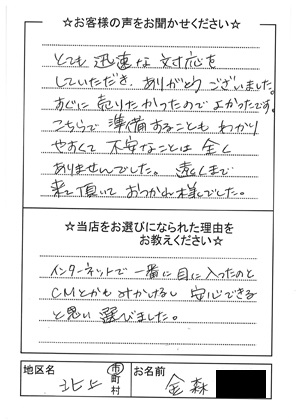 ☆お客様の声をお聞かせください☆
とても 迅速な 対応を
していただき、ありがとう ございました。
すぐに 売りたかったので よかったです。
こちらで 準備することも わかり
やすくて 不安なことは 全く
ありませんでした。 遠くまで
来て頂いて おつかれ様でした。
☆当店をお選びになられた理由を
お教えください☆
インターネットで 一番に 目に入ったのと
CMとかも みかけるし 安心できる
と思い 選びました。
地区名 北上 市町村 お名前 金森